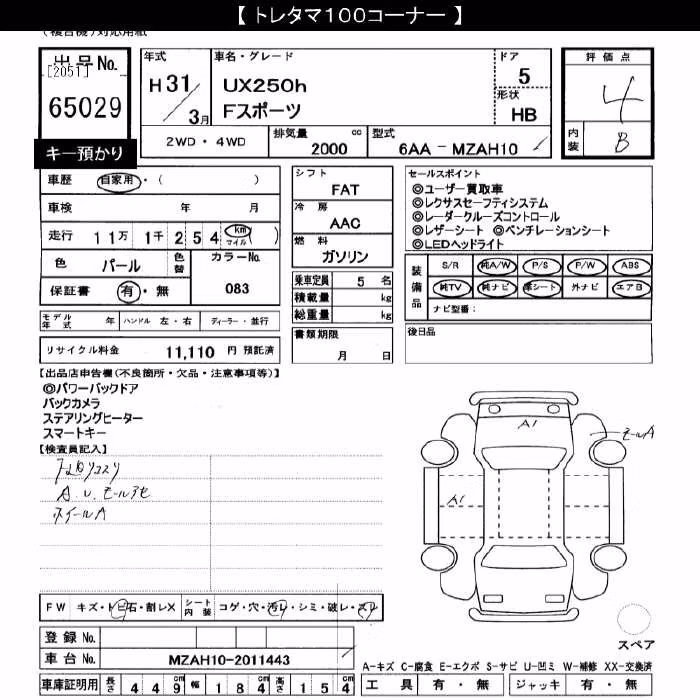 【 トレタマ100コーナー 】
(複合機)対応用紙
出品No.
[2051]
65029
キー預かり
年式
H 31/3月
車名・グレード
UX250h
Fスポーツ
ドア
5
形状
HB
2WD・4WD
排気量 cc
2000
型式
6AA － MZAH10
評価点
4
内装
B
車歴 自家用・( )
車検 年 月
走行 11万 1千 2 5 4 km マイル ( )
色 パール 色替
カラーNo.
083
保証書 有・無
モデル年式 年 ハンドル 左・右 ディーラー・並行
リサイクル料金 11,110 円 預託済
シフト
FAT
冷房
AAC
燃料
ガソリン
乗車定員 5 名
積載量 kg
総重量 kg
書類期限
月 日
セールスポイント
◎ユーザー買取車
◎レクサスセーフティシステム
◎レーダークルーズコントロール
◎レザーシート ◎ベンチレーションシート
◎LEDヘッドライト
装備品
S/R 純A/W P/S P/W ABS
純TV 純ナビ 革シート 外ナビ エアB
ナビ型番:
後日品
【出品店申告欄(不良箇所・欠品・注意事項等)】
◎パワーバックドア
バックカメラ
ステアリングヒーター
スマートキー
【検査員記入】
A.U.モールアセ
ホイールA
A1
モールA
A1
FW キズ・トビ石・割レX シート内装 コゲ・穴・汚レ・シミ・破レ・スレ
登録 No.
車台 No. MZAH10-2011443
車庫証明用 長さ 4 4 9 cm 幅 1 8 4 cm 高さ 1 5 4 cm
スペア
A-キズ C-腐食 E-エクボ S-サビ U-凹ミ W-補修 XX-交換済
工具 有・無 ジャッキ 有・無